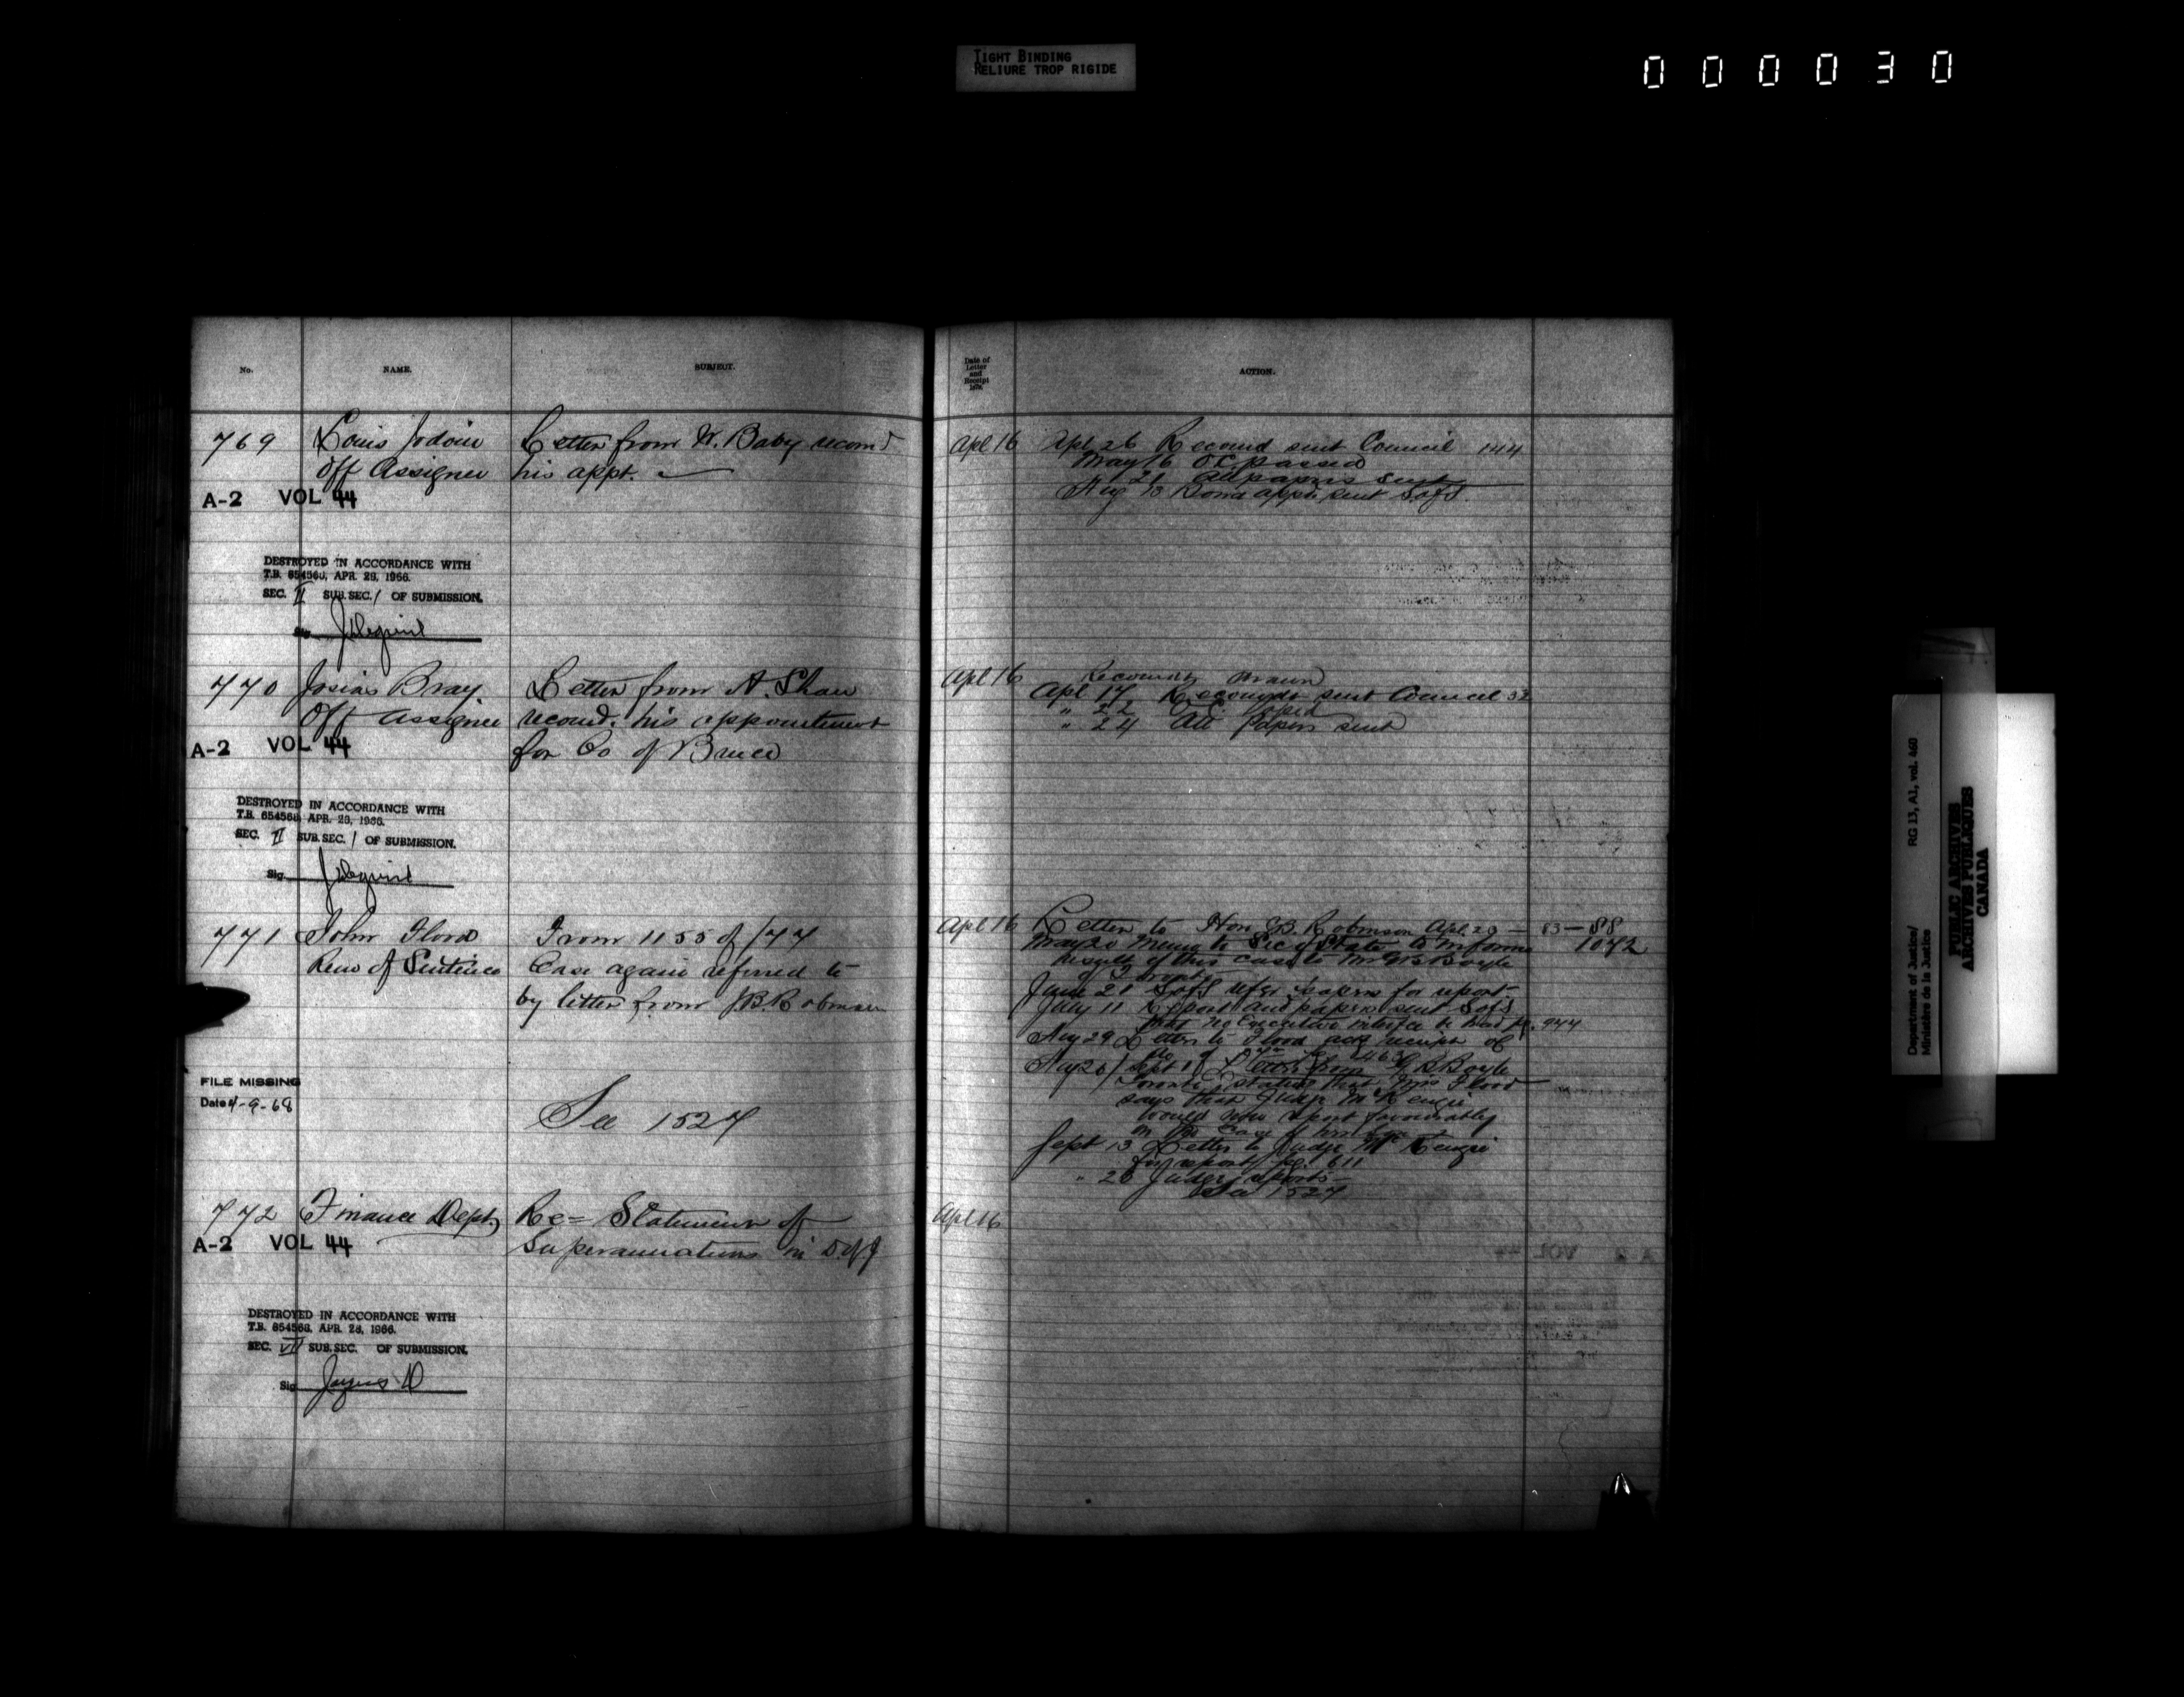 TIGHT BINDING
RELIURE TROP RIGIDE
000030
No. NAME. SUBJECT.
Date of
Letter
and
Receipt
ACTION.
769 Louis Jodoin Letter from W. Baby recomd
Off Assignee his appt.
A-2 VOL 44
Apl 16 Apl 26 Recomd sent Council 144
May 16 OC passed
21 All papers sent
Aug 13 appt, sent SofS
DESTROYED IN ACCORDANCE WITH
T.B. 654560, APR. 28, 1966.
SEC. II SUB. SEC. 1 OF SUBMISSION.
770 Josias Bray Letter from A. Shaw
Off Assignee recomd. his appointment
A-2 VOL 44 for Co of Bruce
Apl 16 drawn
Apl 17 sent Council 32
" 22 O.C.
" 24 All papers sent
DESTROYED IN ACCORDANCE WITH
T.B. 654568, APR. 28, 1966.
SEC. II SUB. SEC. 1 OF SUBMISSION.
Sig.
771 John Flood From 1155 of /77
Rem of Sentence Case again referred to
by letter from J.B. Robinson
FILE MISSING
Date 4-9-68
See 1527
Apl 16 Letter to Hon J.B. Robinson Apl. 29 — 83 — 88
May 20 Memo to Sec of State to inform 1072
result of this case to Mr G B Boyle
of Toronto
June 21 SofS refer papers for report
July 11 Report and papers sent SofS
that no Executive interfce be had p. 944
Aug 29 Letter to Flood ack receipt of
Aug 26 / Sept 1 Letter from G B Boyle
Toronto stating that Mrs Flood
says that Judge McKenzie
would now report favourably
in the case of her Son
Sept 13 Letter to Judge McKenzie
for report pg. 611
" 26 Judge reports
See 1527
772 Finance Dept Re= Statement of
A-2 VOL 44 Superannuations in D of J
Apl 16
DESTROYED IN ACCORDANCE WITH
T.B. 654568, APR. 28, 1966.
SEC. VII SUB. SEC. OF SUBMISSION.
Sig
Department of Justice/ RG 13, A1, vol. 460
Ministère de la Justice
PUBLIC ARCHIVES
ARCHIVES PUBLIQUES
CANADA